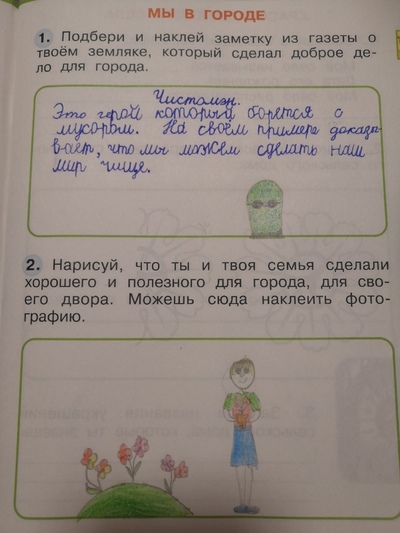 МЫ В ГОРОДЕ
1. Подбери и наклей заметку из газеты о
твоём земляке, который сделал доброе де-
ло для города.
Чистомэн.
Это герой который борется с
мусором. На своём примере доказы-
вает, что мы можем сделать наш
мир чище.
2. Нарисуй, что ты и твоя семья сделали
хорошего и полезного для города, для сво-
его двора. Можешь сюда наклеить фото-
графию.